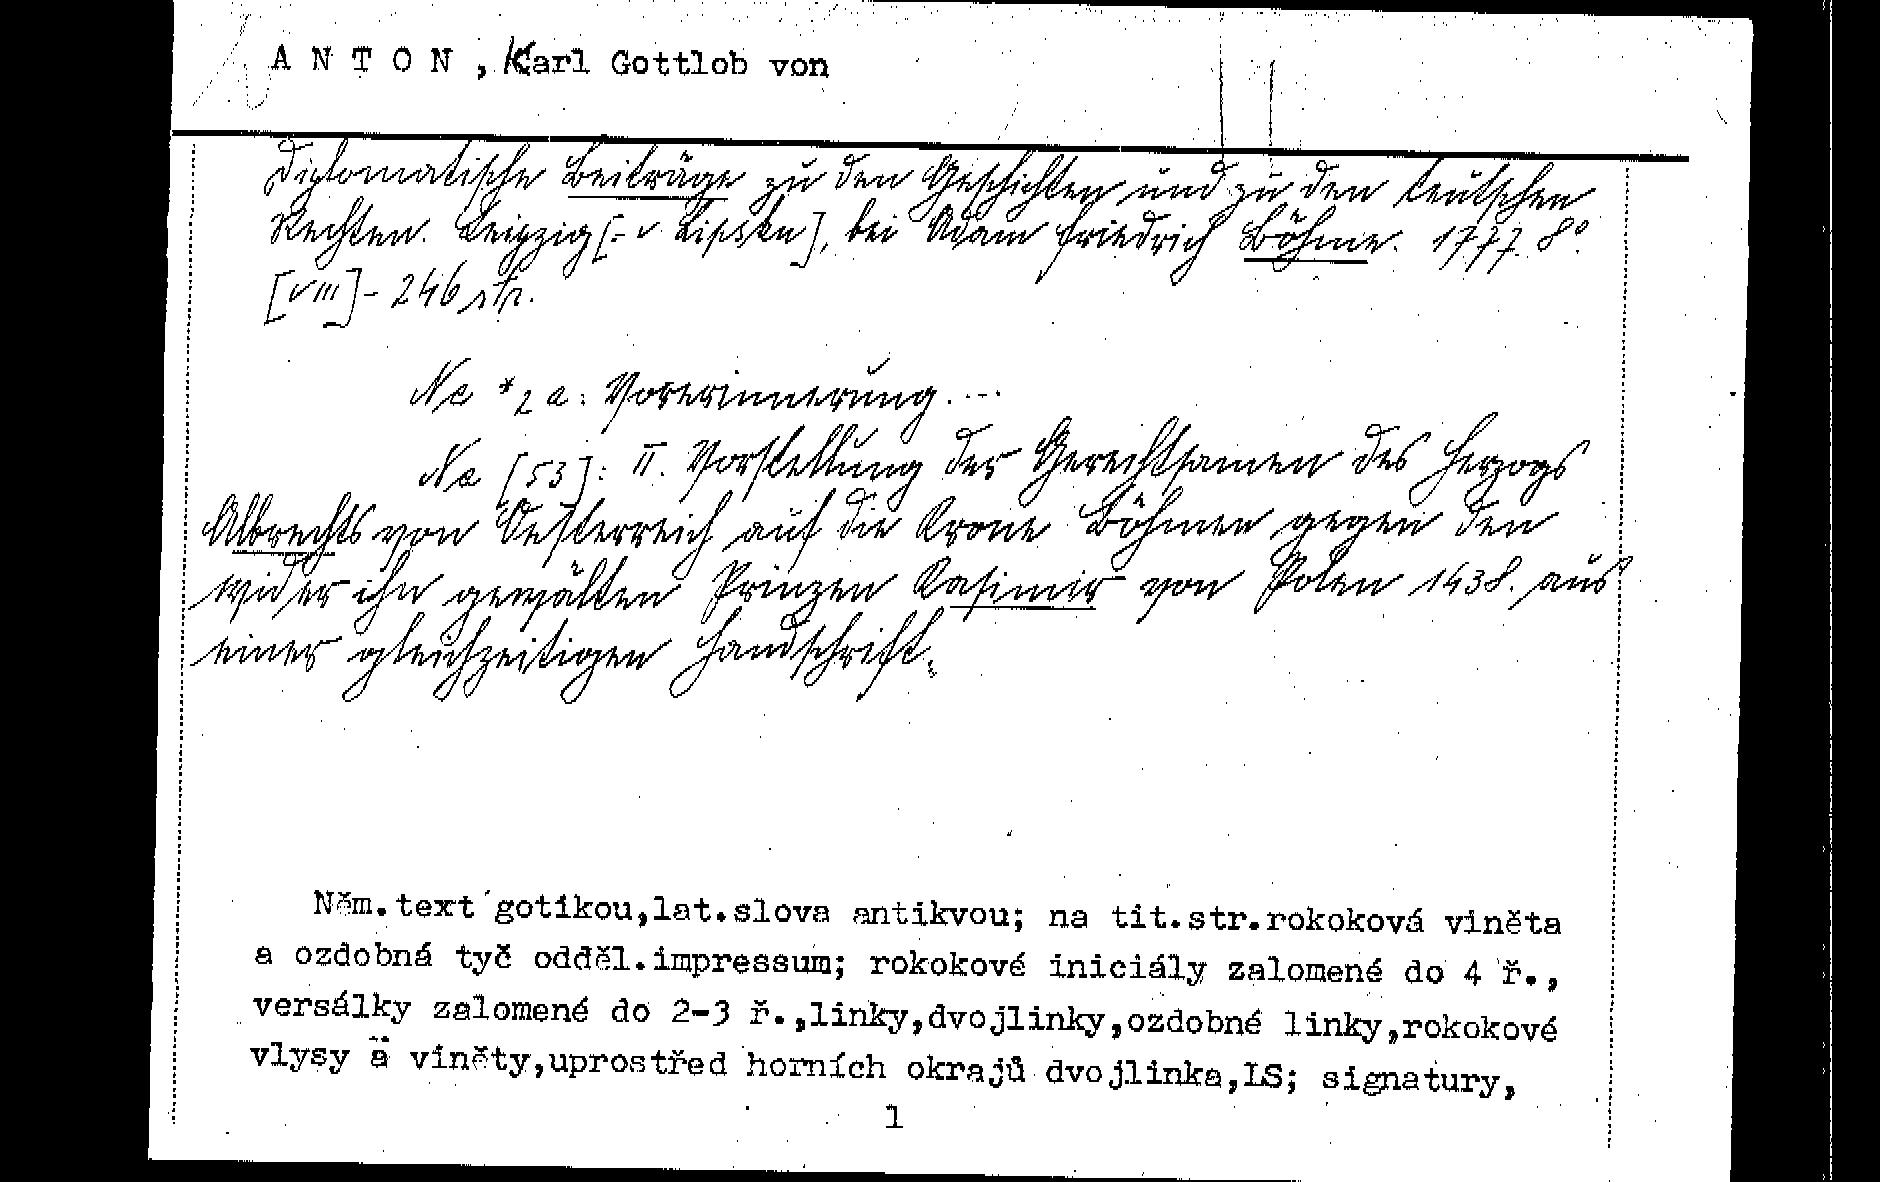 A N T O N , Karl Gottlob von
Diplomatische Beiträge zu den Geschichten und zu den teutschen
Rechten. Leipzig [: v Lipsku], bei Adam Friedrich Böhme. 1777. 8°.
[VIII] - 246 str.
Na *2a: Vorerinnerung....
Na [53]: II. Vorstellung der Gerechtsamen des Herzogs
Albrechts von Oesterreich auf die Krone Böhmen gegen den
wider ihn gewälten Prinzen Kasimir von Polen 1438. aus
einer gleichzeitigen Handschrift.
Něm.text gotikou,lat.slova antikvou; na tit.str.rokoková viněta
a ozdobná tyč odděl.impressum; rokokové iniciály zalomené do 4 ř.,
versálky zalomené do 2-3 ř.,linky,dvojlinky,ozdobné linky,rokokové
vlysy a viněty,uprostřed horních okrajů dvojlinka,LS; signatury,
1